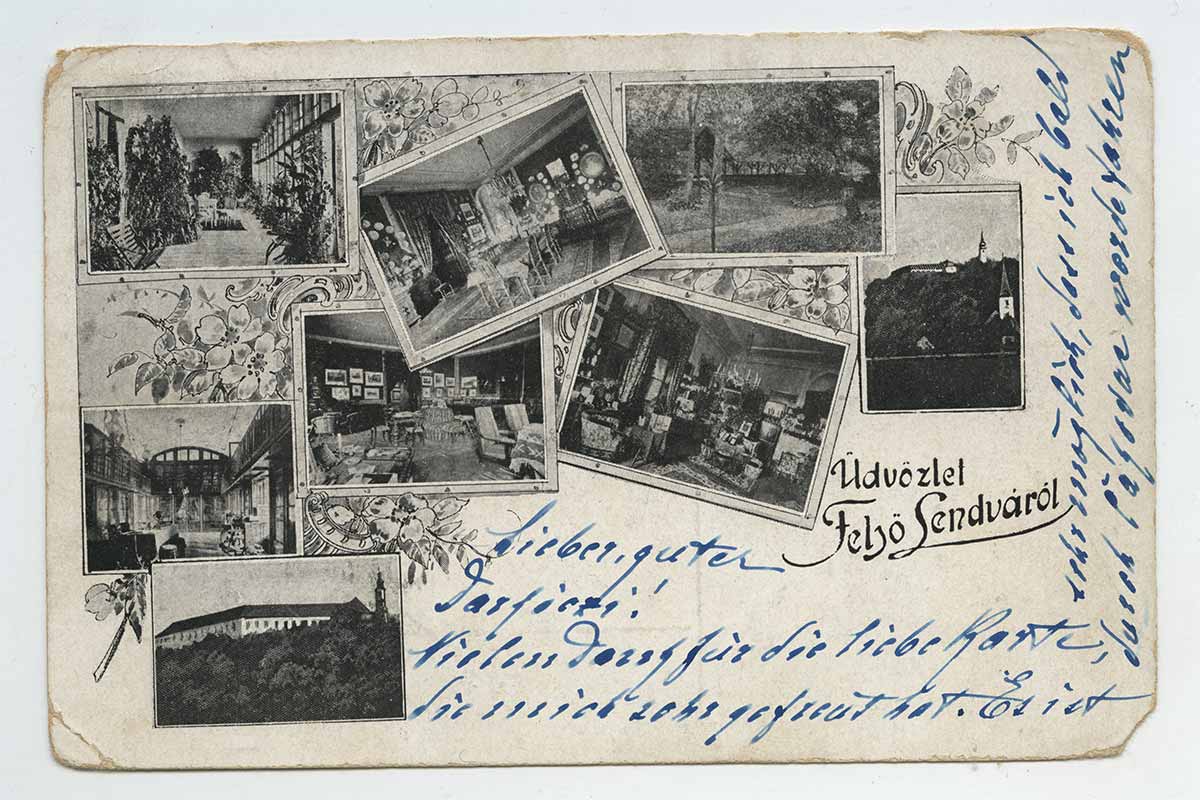 Üdvözlet
Felső Lendváról
Lieber, guter
Vielen Dank für die liebe Karte,
die mich sehr gefreut hat. Es ist
sehr möglich, dass ich bald
durch werde fahren